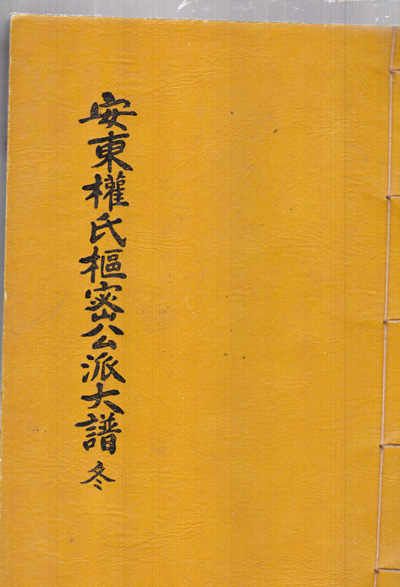 安東權氏樞密公派大譜 冬